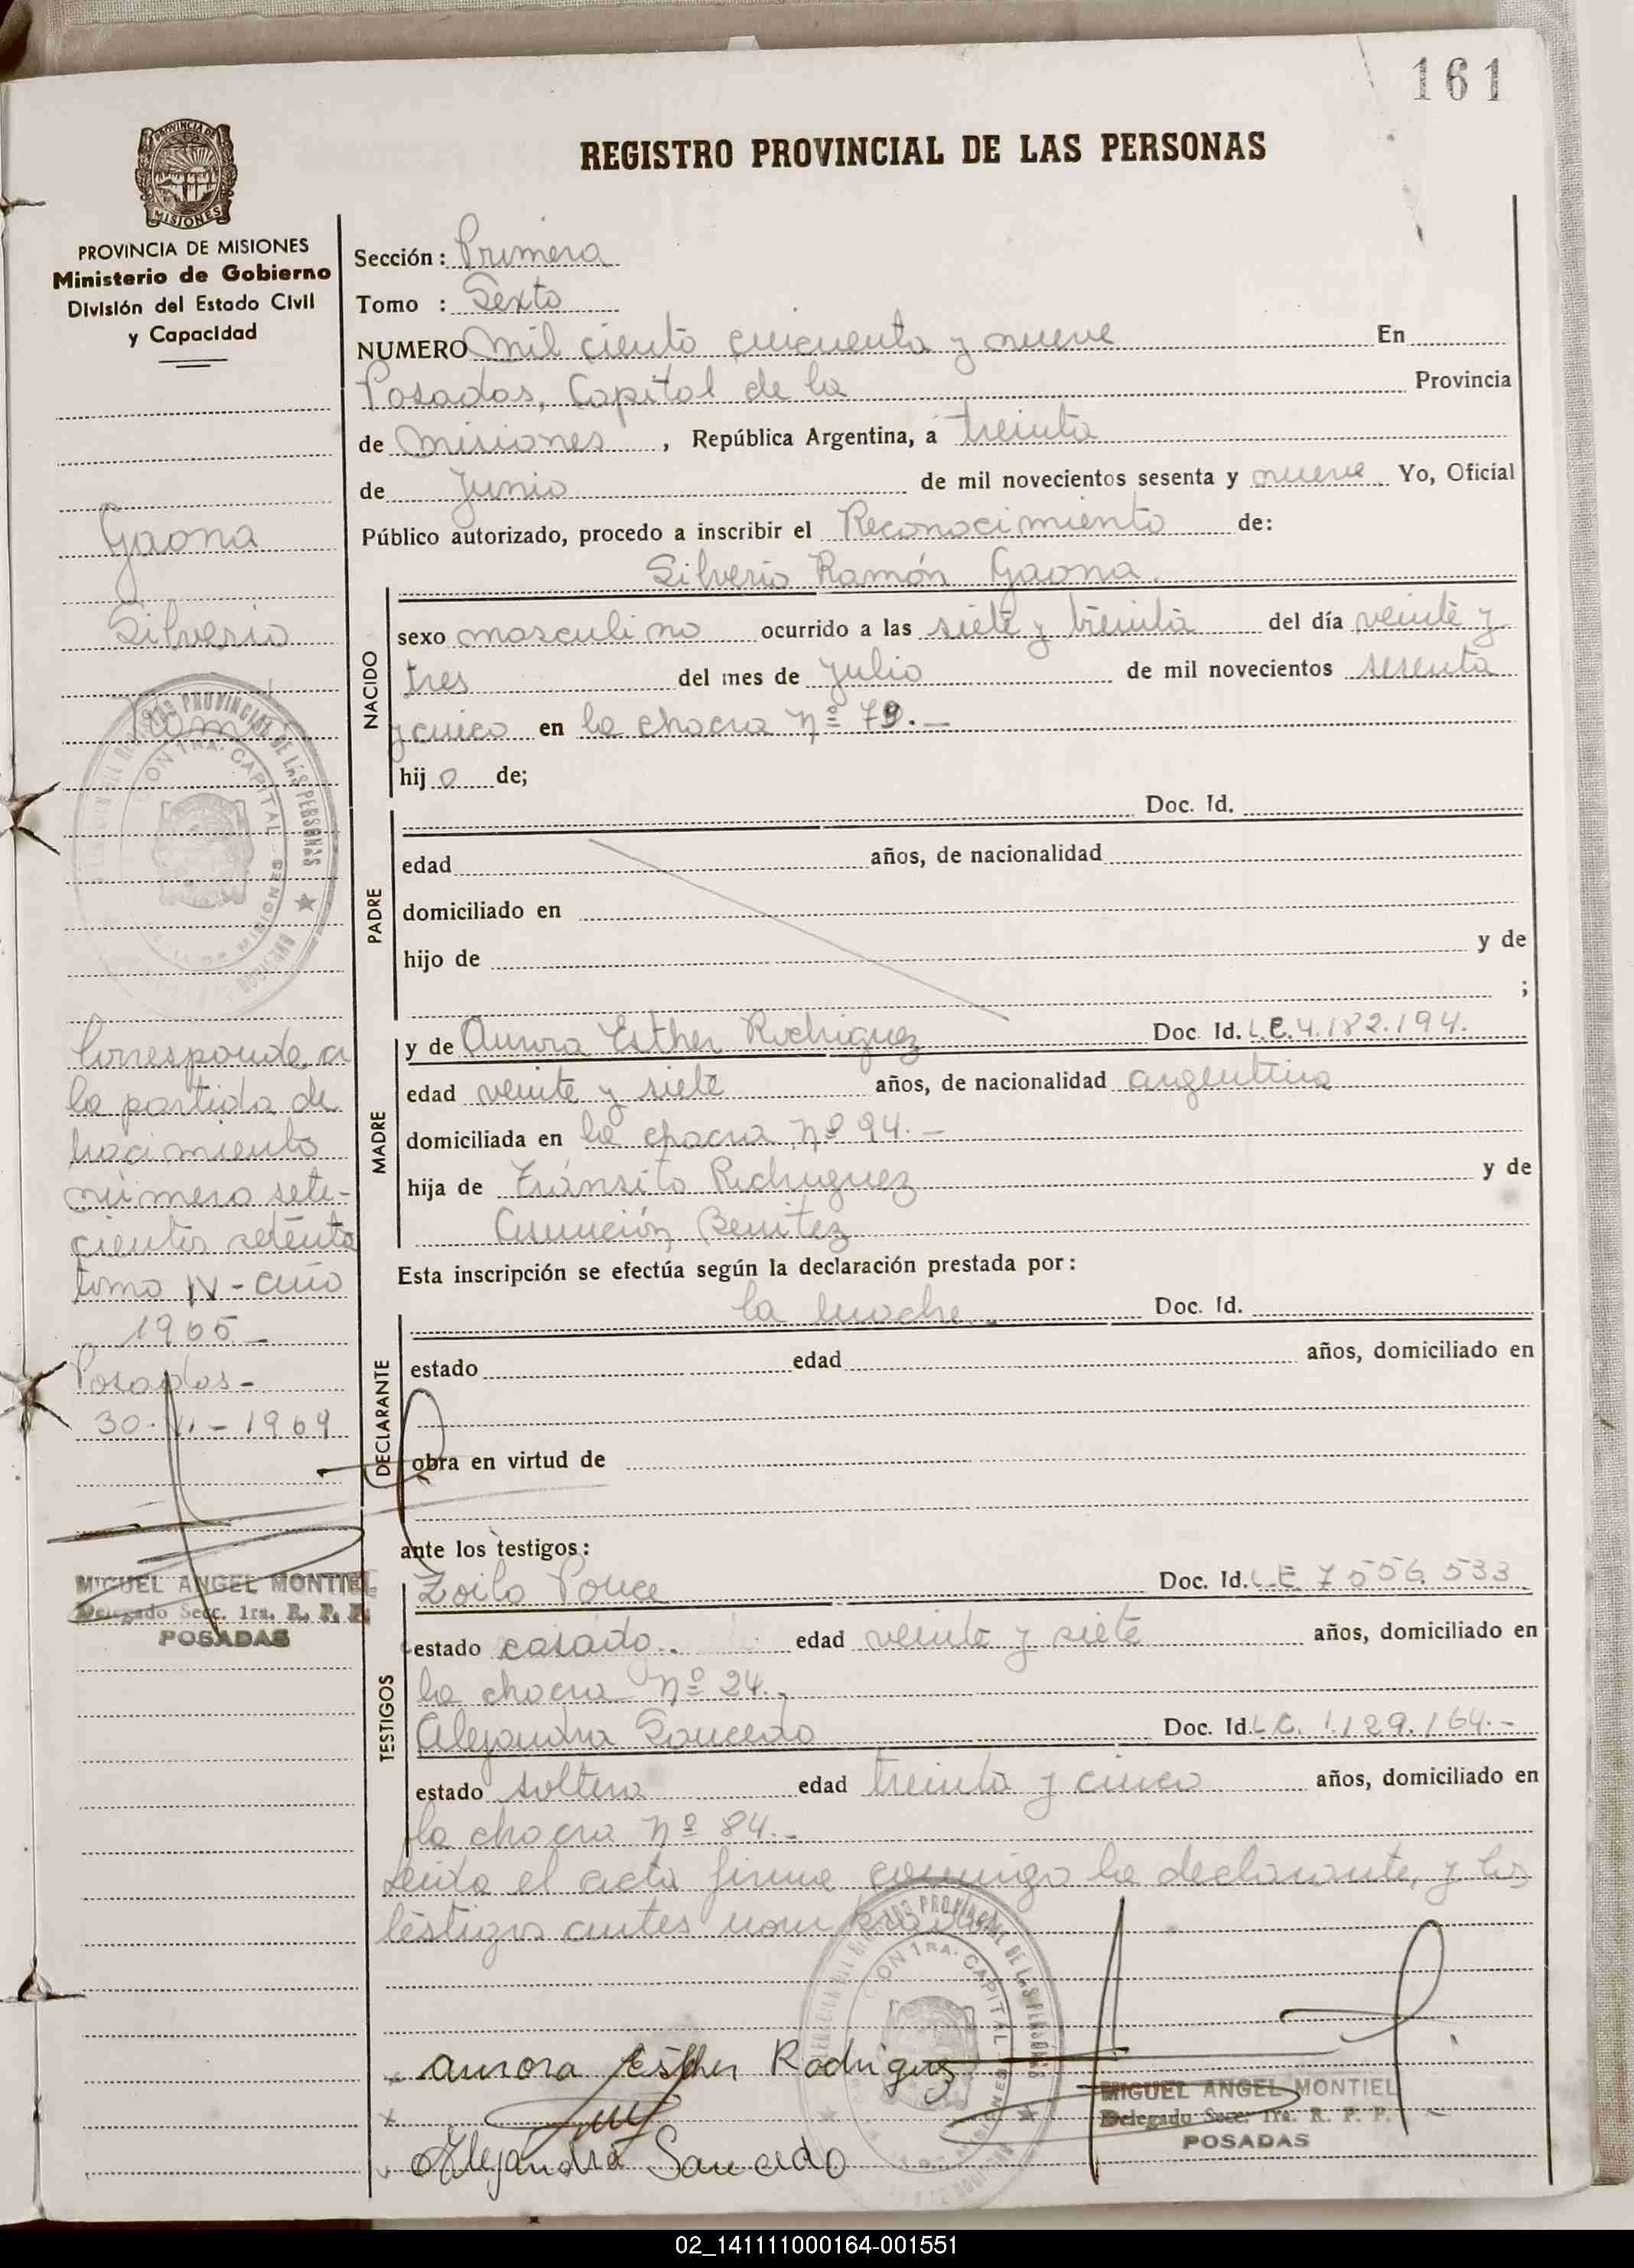 161
PROVINCIA DE MISIONES
REGISTRO PROVINCIAL DE LAS PERSONAS
PROVINCIA DE MISIONES
Ministerio de Gobierno
División del Estado Civil
y Capacidad
Gaona
Silverio
Ramón
REGISTRO PROVINCIAL DE LAS PERSONAS
1RA. CAPITAL
Corresponde a
la partida de
nacimiento
número sete-
cientos setenta
tomo IV - año
1965 -
Posadas -
30 - VI - 1969
MIGUEL ANGEL MONTIEL
Delegado Secc. 1ra. R. P. P.
POSADAS
Sección: Primera
Tomo : Sexto
NUMERO mil ciento cincuenta y nueve En
Posadas, Capital de la Provincia
de Misiones, República Argentina, a treinta
de Junio de mil novecientos sesenta y nueve Yo, Oficial
Público autorizado, procedo a inscribir el Reconocimiento de:
Silverio Ramón Gaona.
NACIDO
sexo masculino ocurrido a las siete y treinta del día veinte y
tres del mes de Julio de mil novecientos sesenta
y cinco en la chacra Nº 79. -
hijo de;
PADRE
Doc. Id.
edad años, de nacionalidad
domiciliado en
hijo de y de
;
MADRE
y de Aurora Esther Rodriguez Doc. Id. L.C. 4.182.194.
edad veinte y siete años, de nacionalidad argentina
domiciliada en la chacra Nº 94. -
hija de Tránsito Rodriguez y de
Asunción Benitez
Esta inscripción se efectúa según la declaración prestada por:
DECLARANTE
la madre. Doc. Id.
estado edad años, domiciliado en
obra en virtud de
ante los testigos:
TESTIGOS
Zoilo Ponce Doc. Id. L.E. 7556533
estado casado. edad veinte y siete años, domiciliado en
la chacra Nº 24. -
Alejandra Saucedo Doc. Id. L.C. 1.129.164. -
estado soltera edad treinta y cinco años, domiciliado en
la chacra Nº 84. -
Leida el acta firma conmigo la declarante, y los
testigos antes nombrados
REGISTRO PROVINCIAL DE LAS PERSONAS
1RA. CAPITAL
Aurora Esther Rodriguez
MIGUEL ANGEL MONTIEL
Delegado Secc. 1ra. R. P. P.
POSADAS
Alejandra Saucedo
02_141111000164-001551